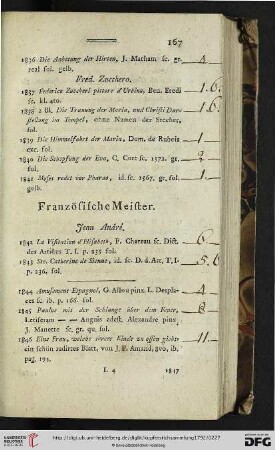 167
1836 Die Anbetung der Hirten, J. Matham sc. gr.
real fol. gelb.
4
Fred. Zucchero.
1837 Federico Zuccheri pictore d'Urbino, Ben. Eredi
sc. kl. 4to.
1.6.
1838 2 Bl. Die Trauung der Maria, und Christi Dar-
stellung im Tempel, ohne Namen der Stecher,
fol.
1.6.
1839 Die Himmelfahrt der Maria, Dom. de Rubeis
exc. fol.
1840 Die Schöpfung der Eva, C. Cort sc. 1572. gr.
fol.
1841 Moses redet vor Pharao, id. sc. 1567. gr. fol.
gelb.
Französische Meister.
Jean André.
1842 La Visitation d'Elisabeth, F. Chereau sc. Dict.
des Artistes T. I. p. 235 fol.
6
1843 Ste. Catherine de Sienne, id. sc. D. d. Art. T. I.
p. 236, fol.
5.6
1844 Amusement Espagnol, G. Albou pinx. L. Despla-
ces sc. ib. p. 166. fol.
4
1845 Paulus mit der Schlange über dem Feuer,
Letiferam — — Angnis adest. Alexandre pinx.
J. Manette sc. gr. qu. fol.
1846 Eine Frau, welche ihrem Kinde zu essen giebt
ein schön radirtes Blatt, von J. F. Amand, 8vo, ib.
pag. 195.
11
L 4
1847
http://digi.ub.uni-heidelberg.de/diglit/kupferstichsammlung1792/0227
© Universitätsbibliothek Heidelberg